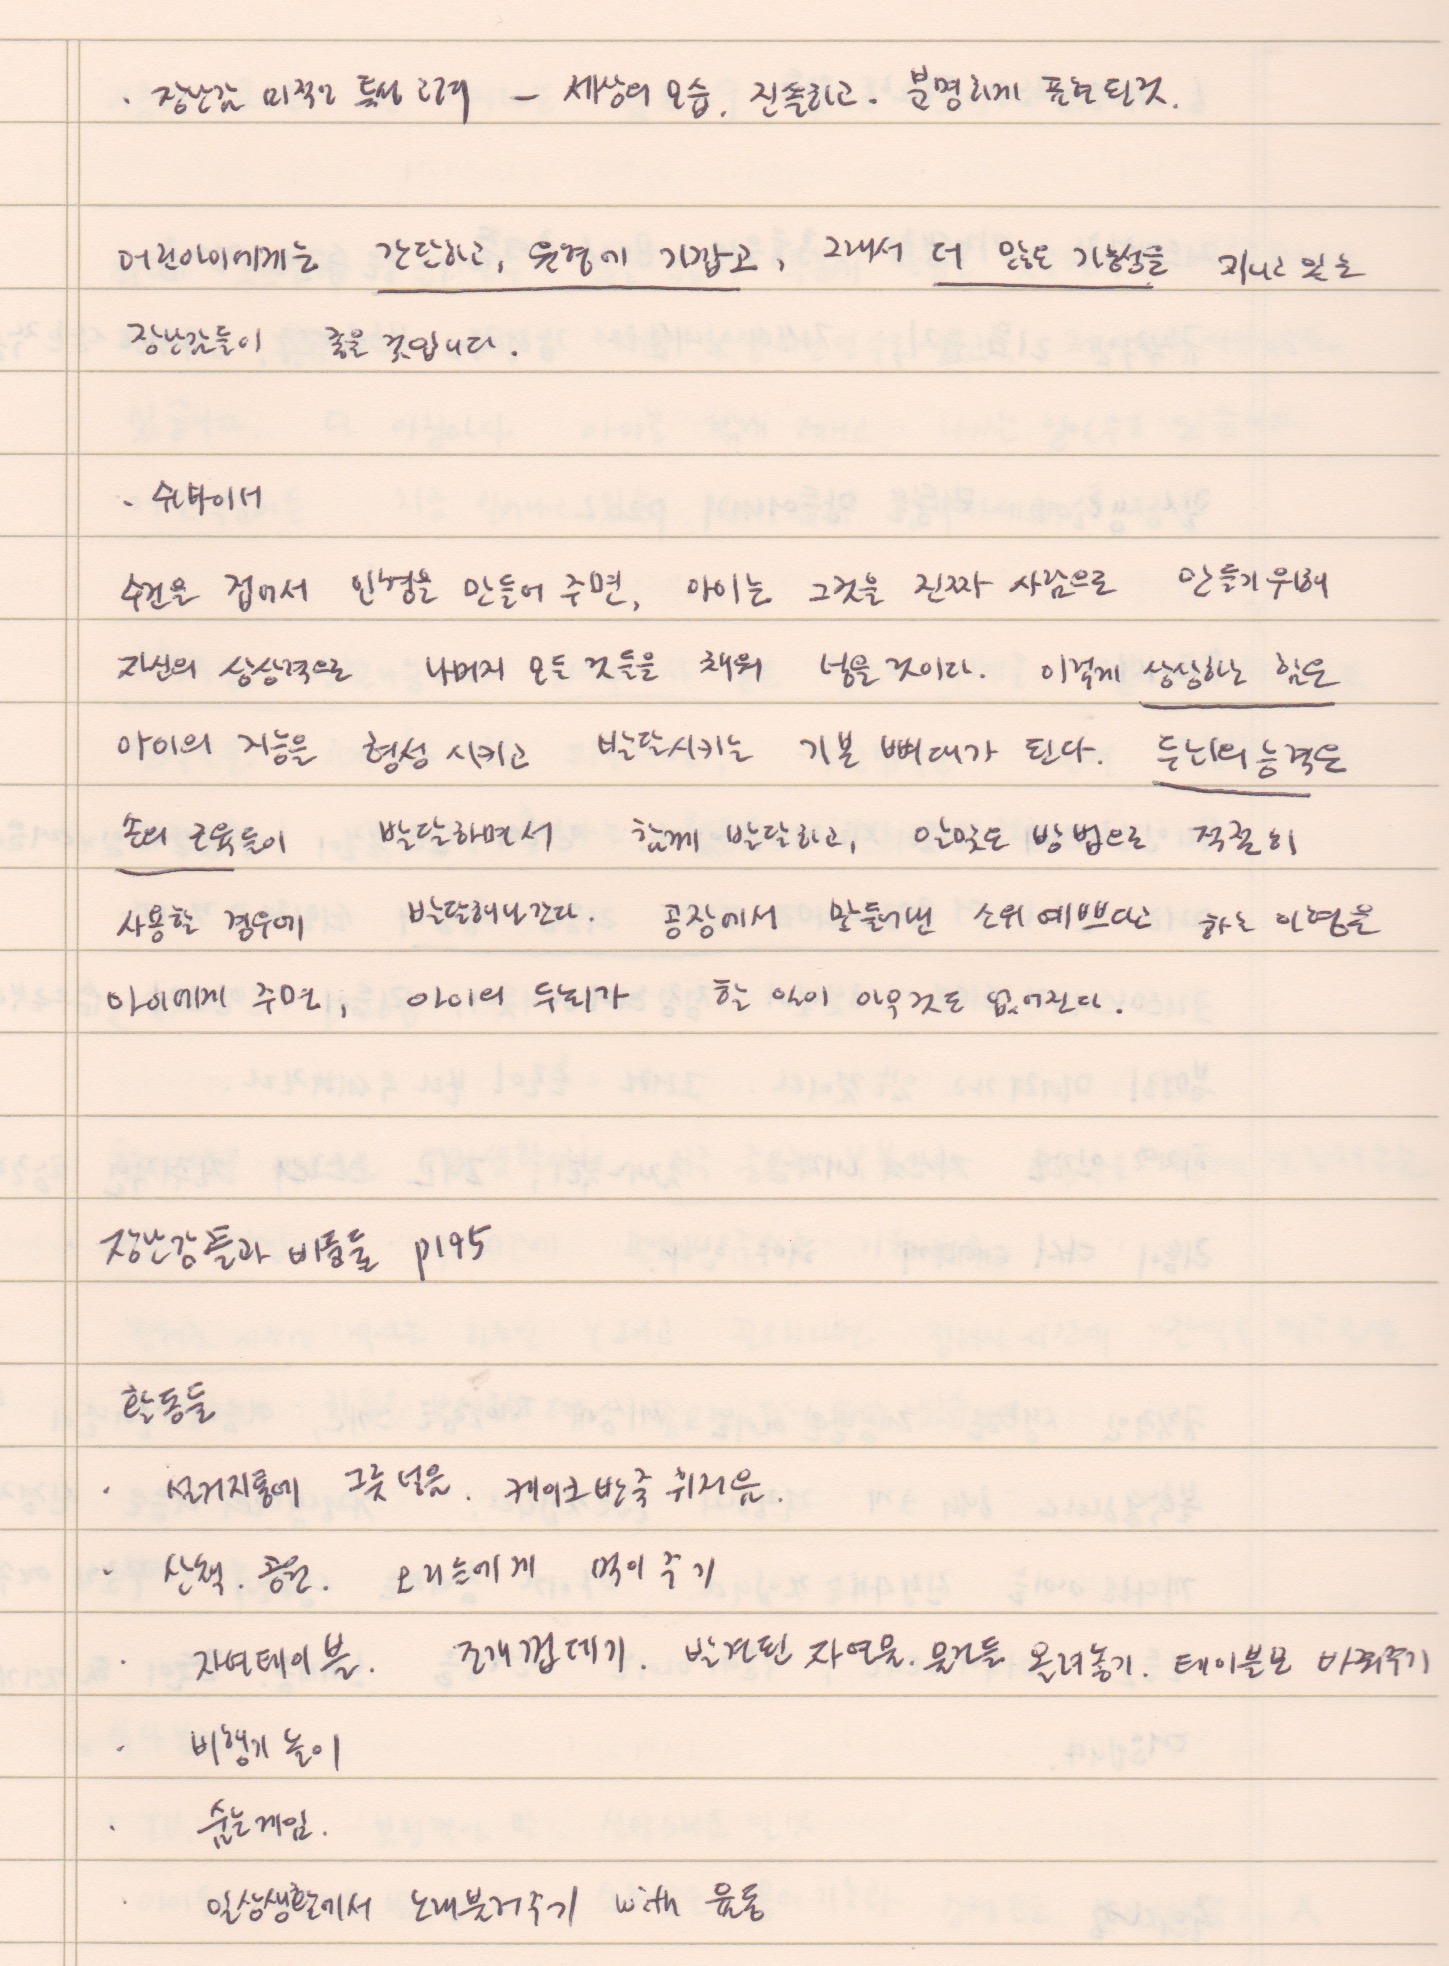 · 장난감 미적인 특성 고려 - 세상의 모습. 진솔하고. 분명하게 표현된것.
어린아이에게는 간단하고, 원형에 가깝고, 그래서 더 많은 가능성을 지니고 있는
장난감들이 좋을 것입니다.
· 슈타이너
수건을 접어서 인형을 만들어 주면, 아이는 그것을 진짜 사람으로 만들기 위해
자신의 상상력으로 나머지 모든 것들을 채워 넣을 것이다. 이렇게 상상하는 힘은
아이의 지능을 형성 시키고 발달시키는 기본 뼈대가 된다. 두뇌의 능력은
손의 근육들이 발달하면서 함께 발달하고, 알맞은 방법으로 적절히
사용할 경우에 발달해나간다. 공장에서 만들어낸 소위 예쁘다고 하는 인형을
아이에게 주면, 아이의 두뇌가 할 일이 아무것도 없어진다.
장난감들과 비품들 p195
활동들
· 설거지통에 그릇 넣음. 케이크반죽 휘저음.
· 산책. 공원. 오리들에게 먹이 주기
· 자연테이블. 조개껍데기. 발견된 자연물. 물건들 올려놓기. 테이블보 바꿔주기
· 비행기 놀이
· 숨는게임.
· 일상생활에서 노래불러주기 with 율동